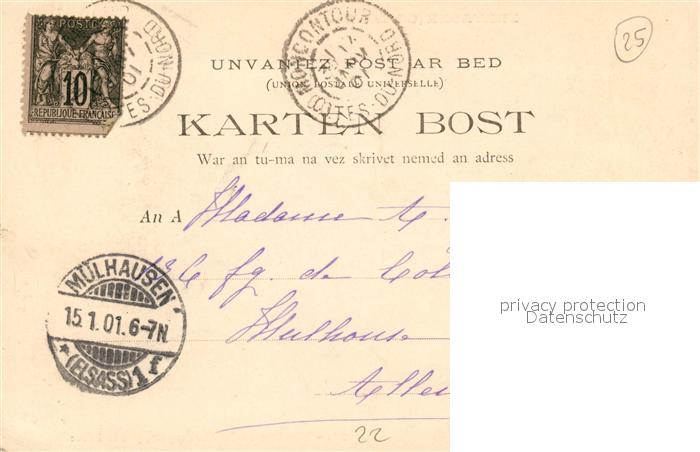 POSTE
10
REPUBLIQUE FRANÇAISE
MONCONTOUR
COTES-DU-NORD
25
UNVANIEZ POST AR BED
(UNION POSTALE UNIVERSELLE)
KARTEN BOST
War an tu-ma na vez skrivet nemed an adress
An A Madame A.
fg. de Col
Mulhouse
Alle
MÜLHAUSEN
15.1.01.6-7N.
(ELSASS) 1 f
privacy protection
Datenschutz
22